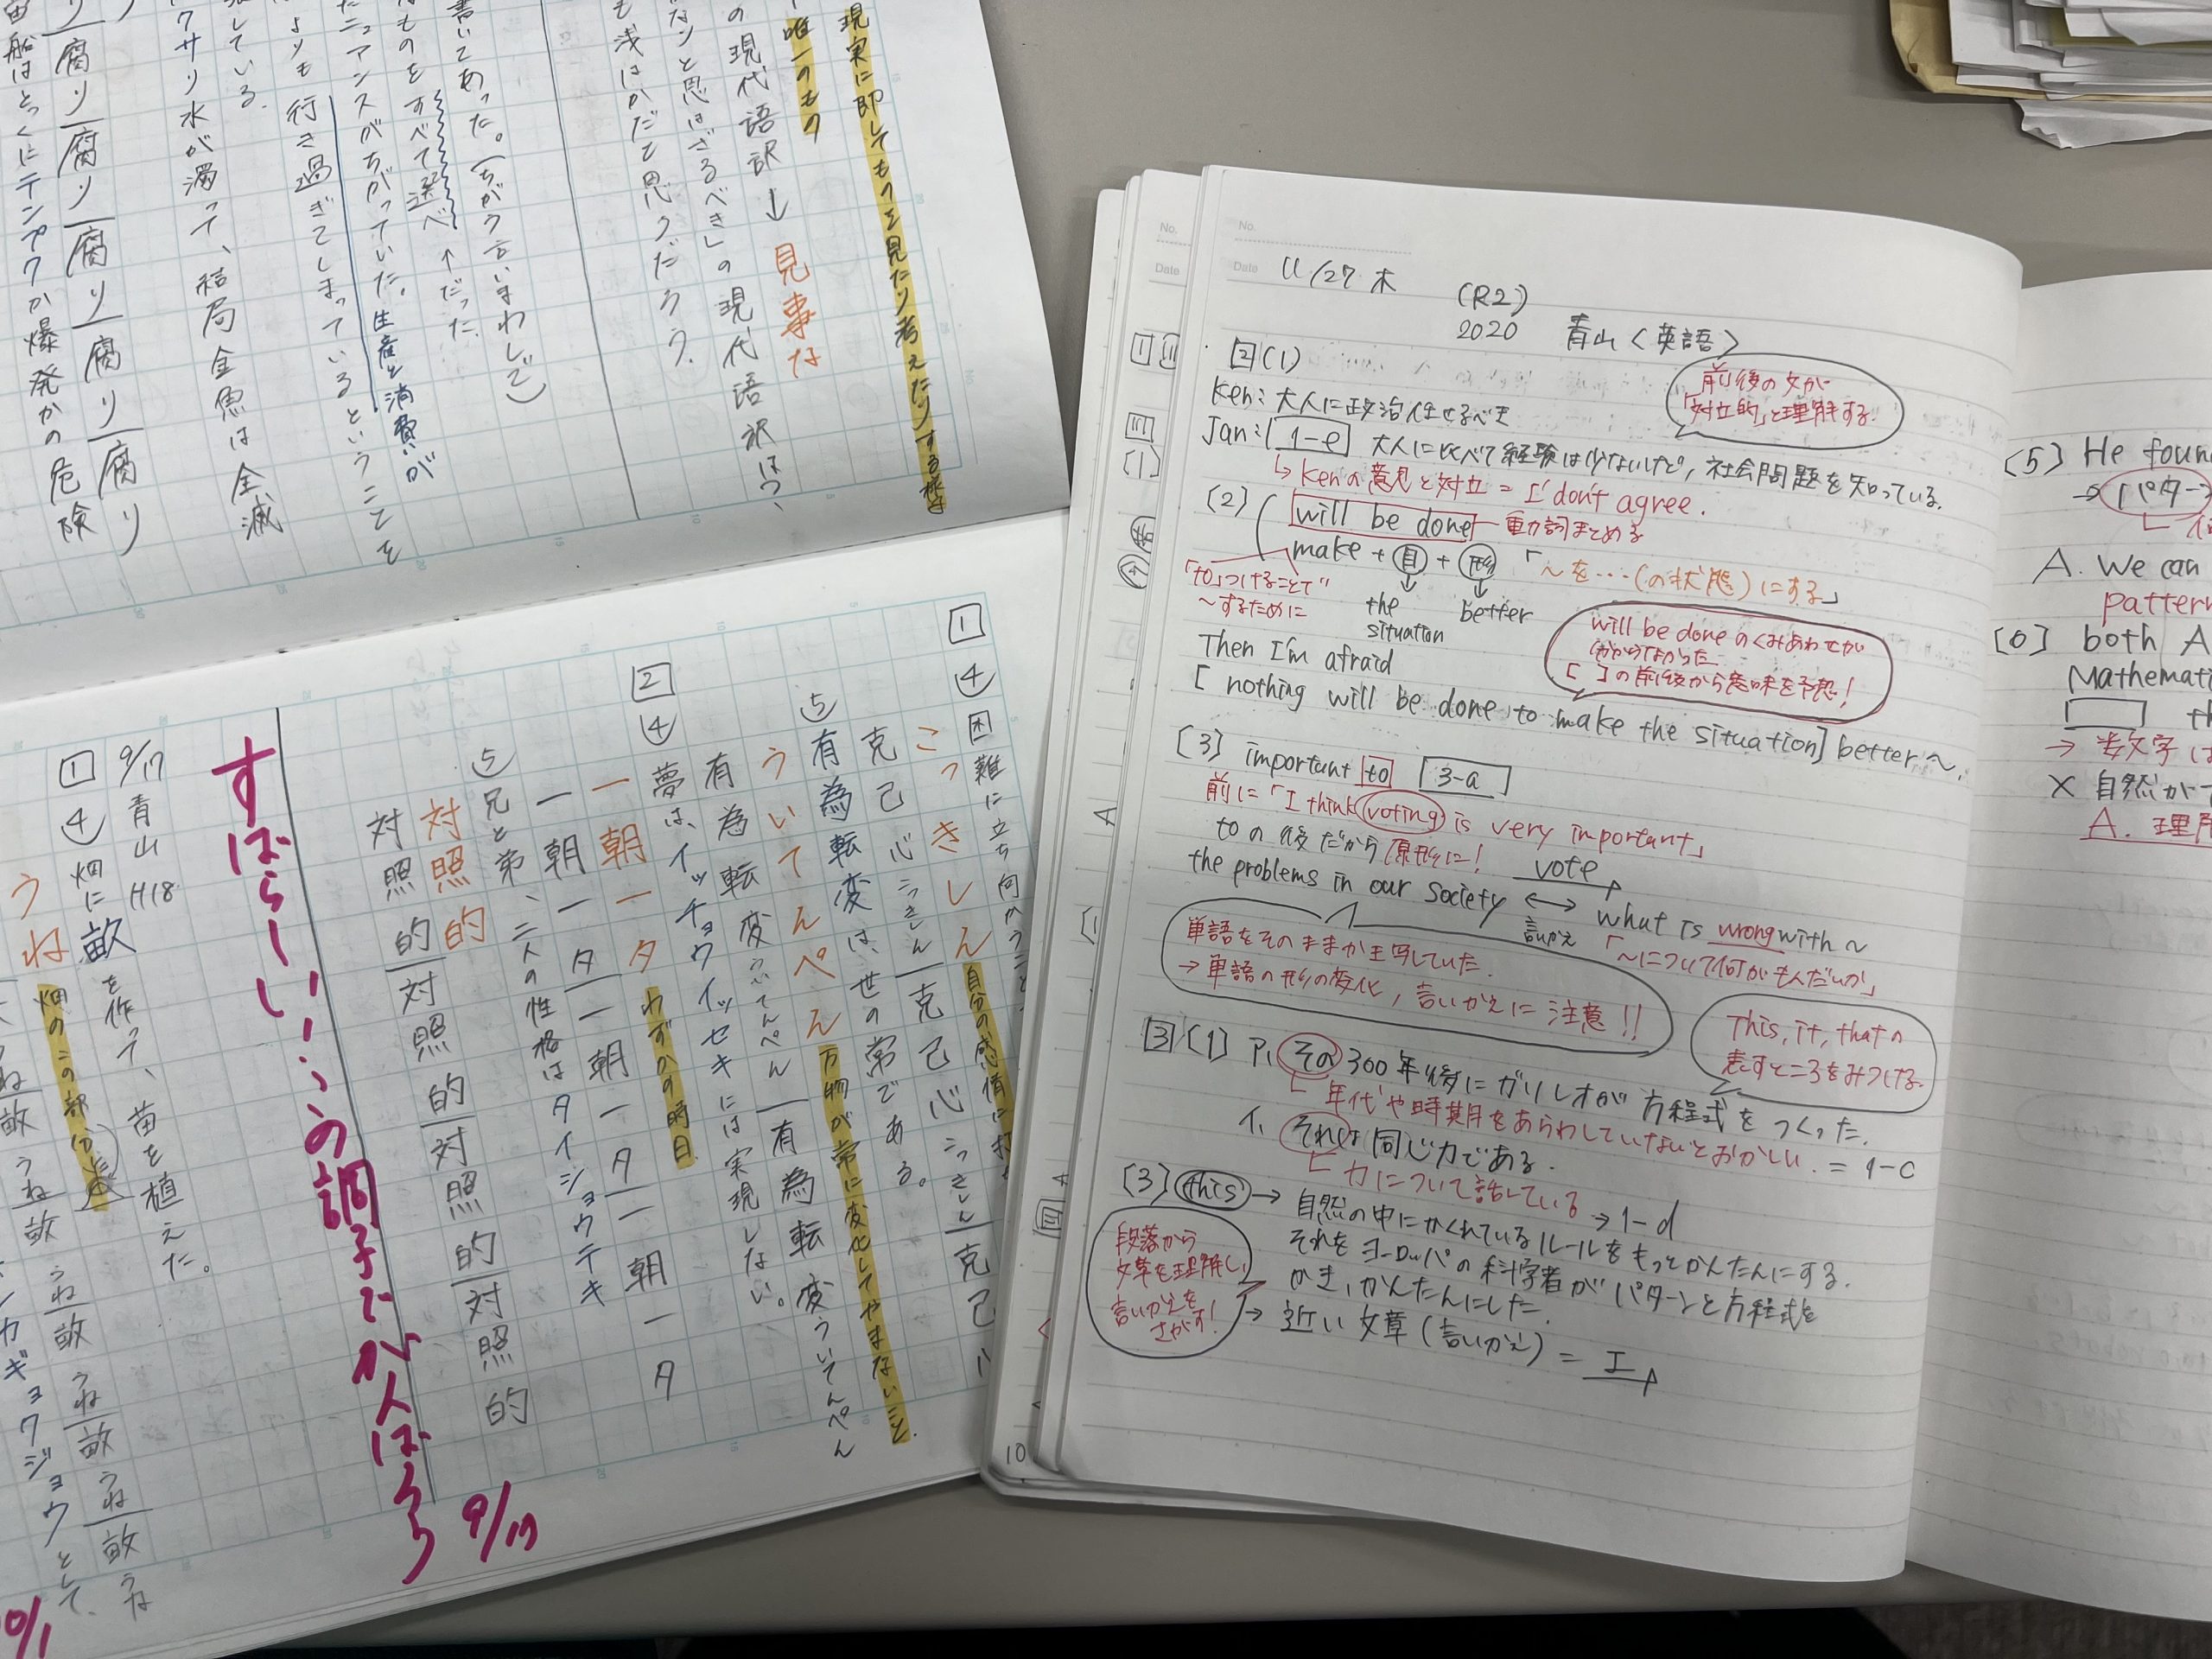 現実に即してものを見たり考えたりする様子
唯一のもの
の現代語訳→見事な
なンと思はざるべき」の現代語訳は?
も浅はかだと思うだろう。
書いてあった。(ちがう言いまわしで)
なものをすべて選べ ↑だった。
たニュアンスがちがっていた。生産と消費が
よりも行き過ぎてしまっているということを
張している。
クサリ水が濁って、結局金魚は全滅
リ|腐リ|腐リ|腐リ|腐リ|腐リ
宙船はとっくにテンプクか爆発かの危険
1
④ 困難に立ち向かうこと
こっきしん 自分の感情に打
克己心こっきしん|克己心こっきしん|克己心
⑤ 有為転変は、世の常である。
ういてんぺん 万物が常に変化してやまないこと。
有為転変ういてんぺん|有為転変ういてんぺん
2
④ 夢は、イッチョウイッセキには実現しない。
一朝一夕 わずかの時日
一朝一夕|一朝一夕|一朝一夕
⑤ 兄と弟、二人の性格はタイショウテキ
対照的
対照的|対照的|対照的|対照的
9/17
すばらしい!この調子でがんばろう
9/17 青山 H18
1
④ 畑に畝を作って、苗を植えた。
うね 畑のこの部分
うね|畝うね|畝うね|畝うね|畝うね
カギョウジョウとして、
0/1
No.
Date
No.
Date 11/27 木
(R2)
2020 青山<英語>
2(1)
前後の文が
「対立的」と理解する。
Ken: 大人に政治任せるべき
Jan: 1-e 大人に比べて経験は少ないけど, 社会問題を知っている。
↳ Kenの意見と対立 = I don't agree.
(2) will be done 動詞まとめる
make + 目 + 形 「~を…(の状態)にする」
「to」つけることで
~するために
the situation
better
will be doneのくみあわせが
分からなかった
[ ]の前後から意味を予想!
Then I'm afraid
[ nothing will be done to make the situation] better ~.
(3) important to 3-a
前に「I think voting is very important」
toの後だから原形に! vote
the problems in our society ↔ what is wrong with ~
言いかえ 「~について何がもんだいか」
単語をそのまま書き写していた。
→単語の形の変化, 言いかえに注意!!
This, it, thatの
表すところをみつける。
3(1) ア, その300年後にガリレオが方程式をつくった。
年代や時期をあらわしていないとおかしい. = 1-c
イ, それは同じ力である.
力について話している → 1-d
(3) this → 自然の中にかくれているルールをもっとかんたんにする.
それをヨーロッパの科学者がパターンと方程式を
かき, かんたんにした.
→ 近い文章(言いかえ) = エ
段落から
文章を理解し,
言いかえを
さがす!
10
(5) He foun
→ パター
A. We can
pattern
(6) both A
Mathemati
→ 数文字は
× 自然がで
A. 理